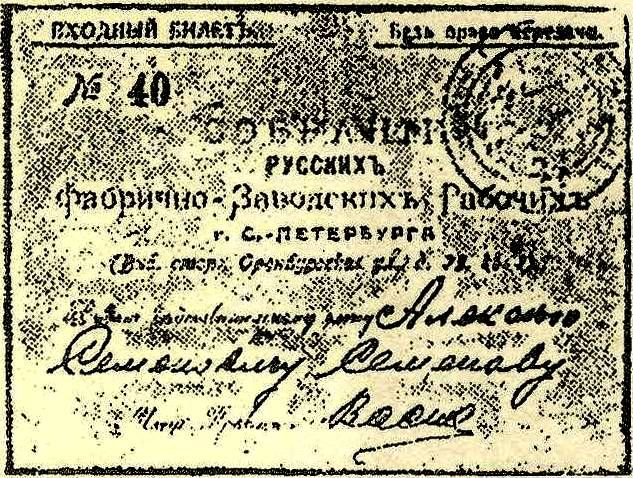 ВХОДНЫЙ БИЛЕТЪ. Безъ права передачи.
№ 40
СОБРАНІЯ
РУССКИХЪ
Фабрично-Заводскихъ Рабочихъ
г. С.-ПЕТЕРБУРГА
(Выб. стор. Оренбургская ул. д.
Алексѣю
Семеновичу Семенову
Васил